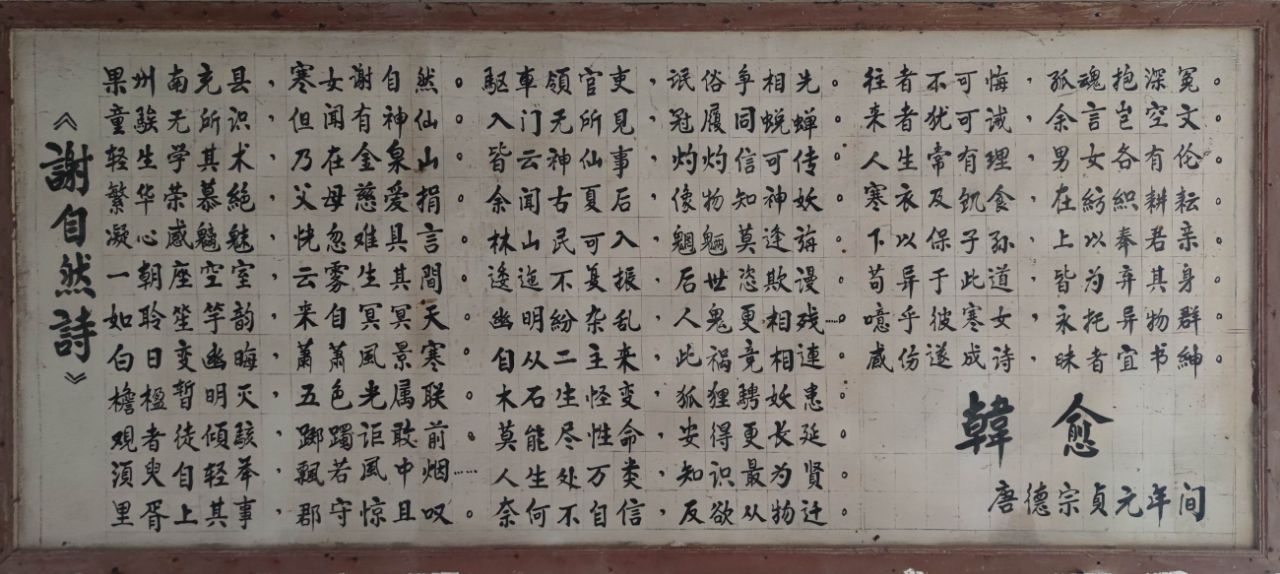 《謝自然詩》
果州南充县，寒女谢自然。
童騃无所识，但闻有神仙。
轻生学其术，乃在金泉山。
繁华荣慕絕，父母慈爱捐。
凝心感魑魅，恍忽难具言。
一朝座空室，云雾生其间。
如聆笙竽韵，来自冥冥天。
白日变幽晦，萧萧風景寒。
檐楹暂明灭，五色光属联。
观者徒倾骇，踯躅讵敢前。
须臾自轻举，飘若風中烟……
里胥上其事，郡守惊且叹。
驱車領官吏，氓俗争相先。
入门无所見，冠履同蜕蝉。
皆云神仙事，灼灼信可传。
余闻古夏后，像物知神妖。
林山民可入，魍魎莫逢诲。
逶迤不复振，后世恣欺谩。
幽明紛杂乱，人鬼更相残……
自从二主来，此祸竞相連。
木石生怪变，狐狸騁妖患。
莫能尽性命，安得更长延。
人生处万类，知识最为贤。
奈何不自信，反欲从物迁。
往者不可悔，孤魂抱深冤。
来者犹可诫，余言岂空文。
人生常有理，男女各有伦。
寒衣及飢食，在紡織耕耘。
下以保子孙，上以奉君亲。
苟异于此道，皆为弃其身。
噫乎彼寒女，永托异物群。
感伤遂成诗，昧者宜书紳。
韓愈
唐德宗贞元年间